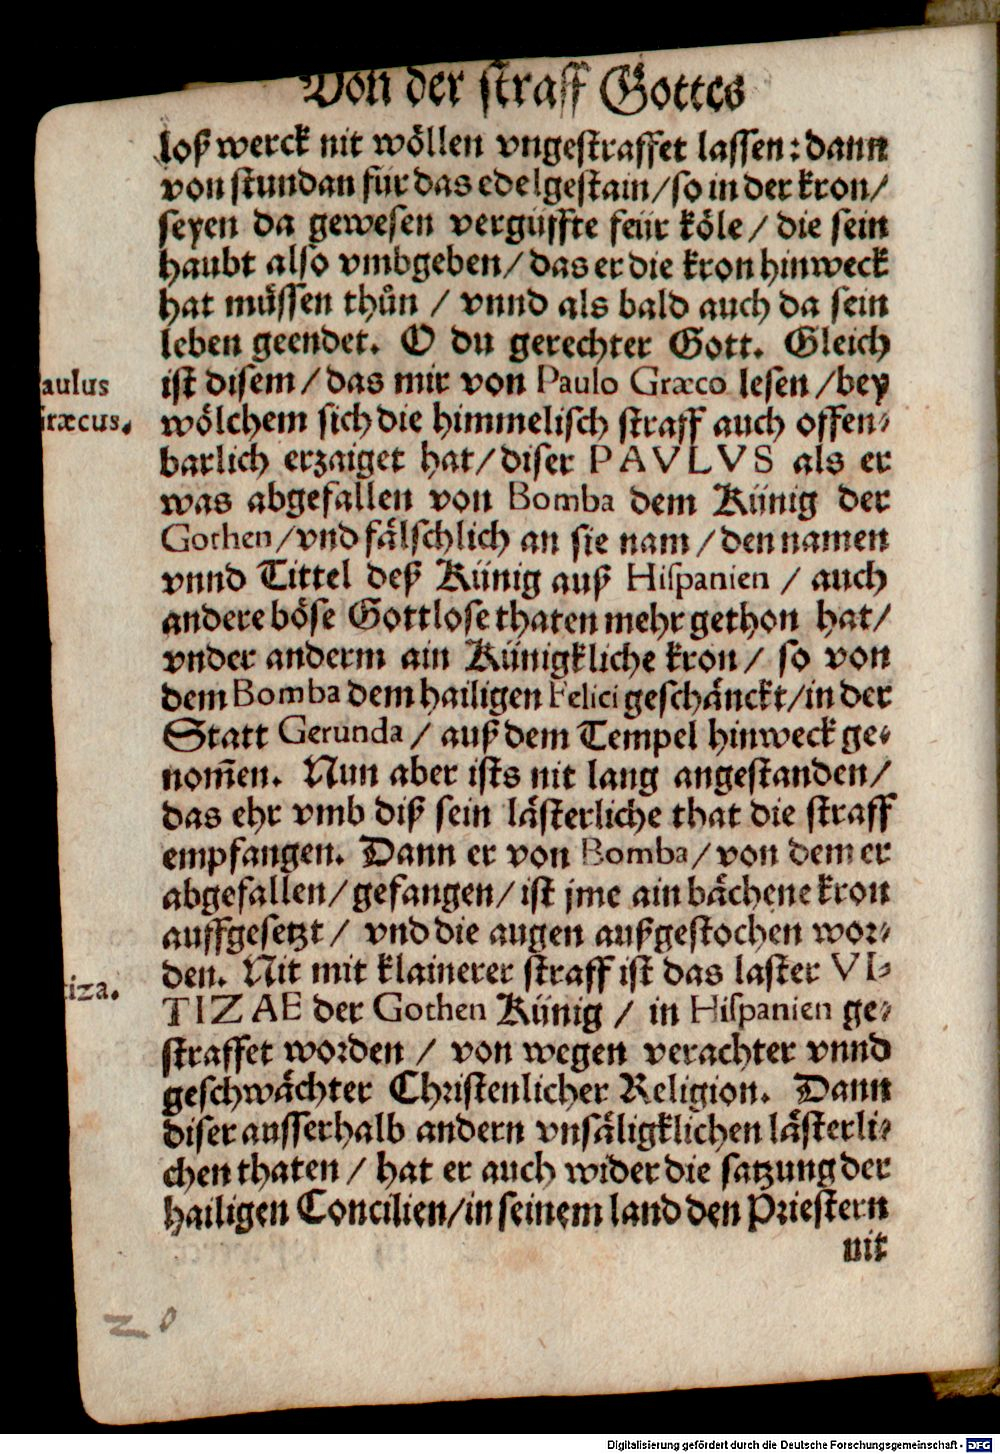 Von der straff Gottes
loß werck nit wöllen vngestraffet lassen: dann
von stundan für das edelgestain / so in der kron /
seyen da gewesen vergüffte feür köle / die sein
haubt also vmbgeben / das er die kron hinweck
hat müssen thůn / vnnd als bald auch da sein
leben geendet. O du gerechter Gott. Gleich
aulus
ist disem / das mir von Paulo Græco lesen / bey
ræcus.
wölchem sich die himmelisch straff auch offen-
barlich erzaiget hat / diser PAVLVS als er
was abgefallen von Bomba dem Künig der
Gothen / vnd fälschlich an sie nam / den namen
vnnd Tittel deß Künig auß Hispanien / auch
andere böse Gottlose thaten mehr gethon hat /
vnder anderm ain Künigkliche kron / so von
dem Bomba dem hailigen Felici geschänckt / in der
Statt Gerunda / auß dem Tempel hinweck ge-
nom̃en. Nun aber ists nit lang angestanden /
das ehr vmb diß sein lästerliche that die straff
empfangen. Dann er von Bomba / von dem er
abgefallen / gefangen / ist jme ain bächene kron
auffgesetzt / vnd die augen außgestochen wor-
den. Nit mit klainerer straff ist das laster VI-
tiza.
TIZAE der Gothen Künig / in Hispanien ge-
straffet worden / von wegen verachter vnnd
geschwächter Christenlicher Religion. Dann
diser ausserhalb andern vnsäligklichen lästerli-
chen thaten / hat er auch wider die satzung der
hailigen Concilien / in seinem land den Priestern
nit
20
Digitalisierung gefördert durch die Deutsche Forschungsgemeinschaft - DFG